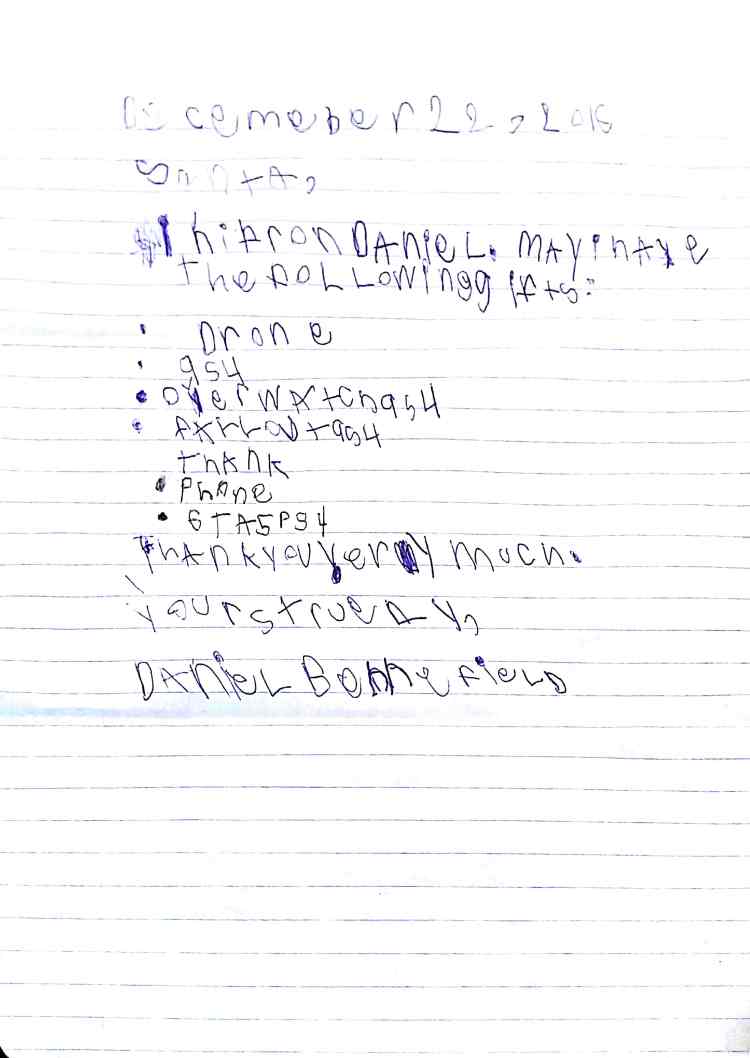 Decemeber 22, 2015
SantA,
hi From DANieL. MAY i hAve
the FOLLOWing gifts:
• Drone
• gs4
• OverWAtch gs4
• FALLOUt gs4
thAnk
• PhOne
• GTA5 PS4
thAnk YOU very much.
YOurs trueLY,
DANieL BOnneFieLD